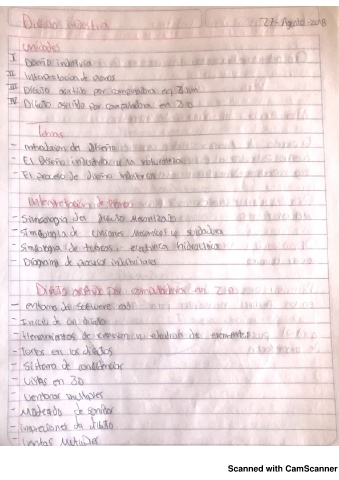 Diseño industria
27-Agosto-2018
Unidades
I Diseño industria
II Interpretacion de planos
III Diseño asistido por computadora en
IV Diseño asistido por computadora en 3D
Temas
- Introduccion de diseño
- El Diseño industrial y la naturaleza
- El proceso de diseño industrial
Interpretación de planos
- Simbologia del
- Simbologia de uniones mecanicas y soldadura
- Simbologia de tuberias, electrica hidraulica
- Diagrama de procesos industriales
Diseño asistido por computadora en 2D
- entorno del Software cad
- Inicio de un dibujo
- Herramientas de creacion y de elementos
- Textos en los dibujos
- Sistema de coordenadas
- Vistas en 3D
- Ventanas multiples
- Modelado de
- Impresiones de dibujo
- Ventas
Scanned with CamScanner